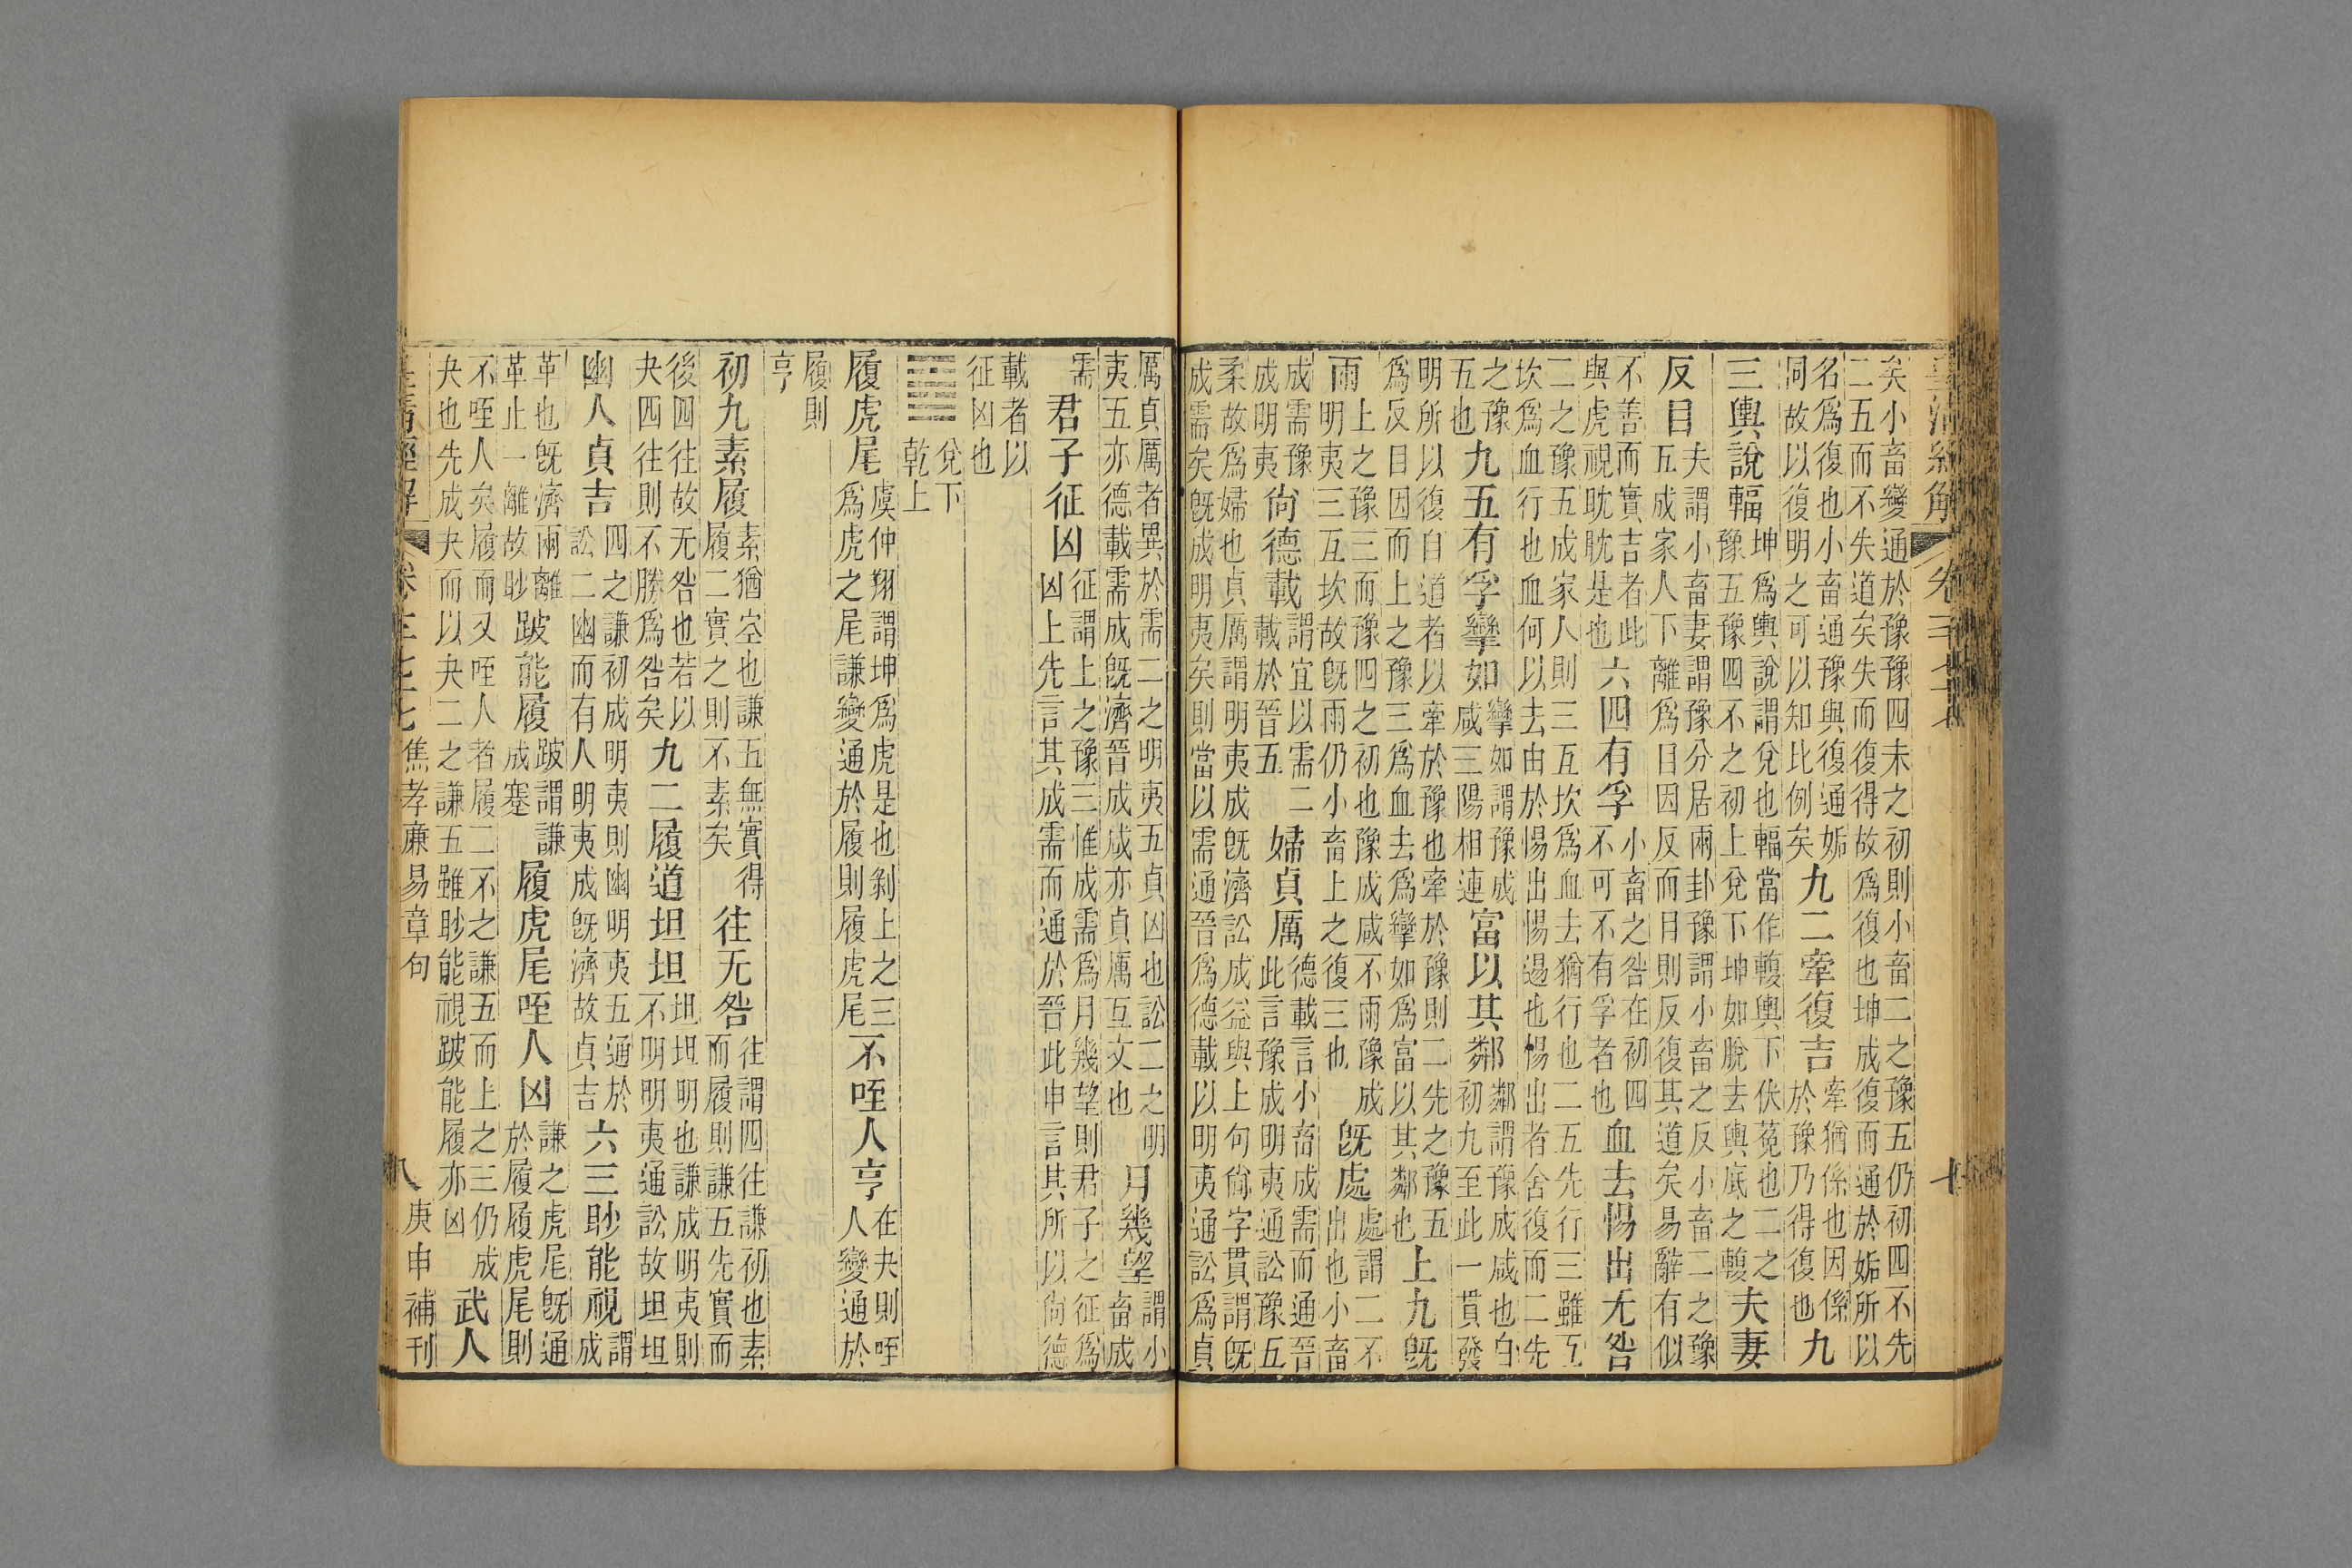 皇清經解 卷
矣小畜變通於豫豫四未之初則小畜二之豫五仍初四不先
二五而不失道矣失而復得故爲復也坤成復而通於姤所以
名爲復也小畜通豫與復通姤
同故以復明之可以知比例矣
九二牽復吉
牽猶係也因係
於豫乃得復也
九
三輿說輻
坤爲輿說謂兌也輻當作輹輿下伏菟也二之
豫五豫四不之初上兌下坤如脫去輿底之輹
夫妻
反目
夫謂小畜妻謂豫分居兩卦豫謂小畜之反小畜二之豫
五成家人下離爲目因反而目則反復其道矣易辭有似
不善而實吉者此
與虎視眈眈是也
六四有孚
小畜之咎在初四
不可不有孚者也
血去惕出无咎
二之豫五成家人則三互坎爲血去猶行也二五先行三雖互
坎爲血行也血何以去由於惕出惕遏也惕出者舍復而二先
之豫
五也
九五有孚攣如
攣如謂豫成
咸三陽相連
富以其鄰
鄰謂豫成咸也自
初九至此一貫發
明所以復自道者以牽於豫也牽於豫則二先之豫五
爲反目因而上之豫三爲血去爲攣如爲富以其鄰也
上九旣
雨
上之豫三而豫四之初也豫成咸不雨豫成
明夷三互坎故旣雨仍小畜上之復三也
旣處
處謂二不
出也小畜
成需豫
成明夷
尙德載
謂宜以需二
載於晉五
婦貞厲
德載言小畜成需而通晉
此言豫成明夷通訟豫五
柔故爲婦也貞厲謂明夷成旣濟訟成益與上句尙字貫謂旣
成需矣旣成明夷矣則當以需通晉爲德載以明夷通訟爲貞
厲貞厲者異於需二之明夷五貞凶也訟二之明
夷五亦德載需成旣濟晉成咸亦貞厲互文也
月幾望
謂小
畜成
需
君子征凶
征謂上之豫三惟成需爲月幾望則君子之征爲
凶上先言其成需而通於晉此申言其所以尙德
載者以
征凶也
兌下
乾上
履虎尾
虞仲翔謂坤爲虎是也剝上之三
爲虎之尾謙變通於履則履虎尾
不咥人亨
在夬則咥
人變通於
履則
亨
初九素履
素猶空也謙五無實得
履二實之則不素矣
往无咎
往謂四往謙初也素
而履則謙五先實而
後四往故无咎也若以
夬四往則不勝爲咎矣
九二履道坦坦
坦坦明也謙成明夷則
不明明夷通訟故坦坦
幽人貞吉
四之謙初成明夷則幽明夷五通於
訟二幽而有人明夷成旣濟故貞吉
六三眇能視
謂
成
革也旣濟兩離
革止一離故眇
跛能履
跛謂謙
成蹇
履虎尾咥人凶
謙之虎尾旣通
於履履虎尾則
不咥人矣履而又咥人者履二不之謙五而上之三仍成
夬也先成夬而以夬二之謙五雖眇能視跛能履亦凶
武人
皇清經解 卷 焦孝廉易章句 八 庚申補刊